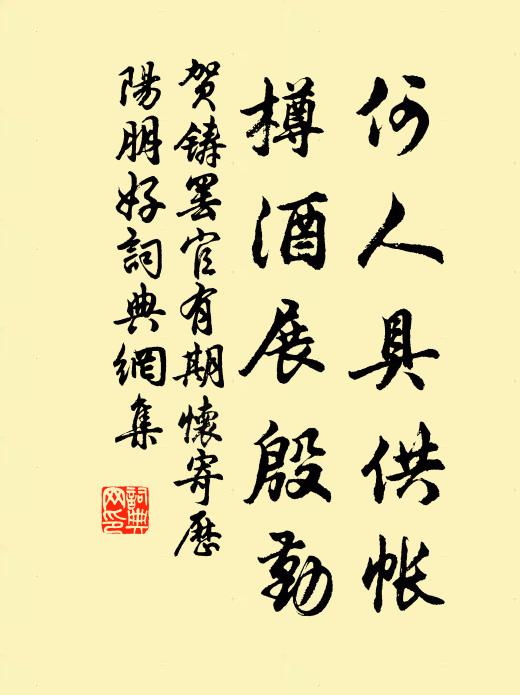 何人具供帐
樽酒展殷勤
贺铸罢官有期怀寄历
陽朋好詞典網集
詞典
网印